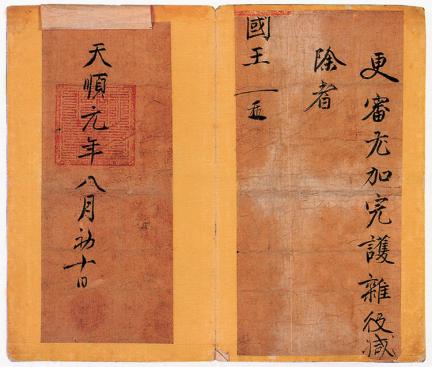 更審尤加完護雜役減
除者
國王
天順元年八月初十日